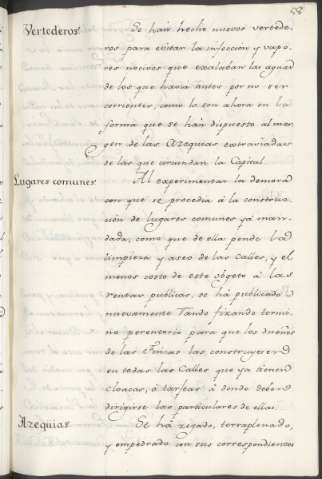 58
Vertederos.
Se han hecho nuevos vertede-
ros para evitar la infeccion y vapo-
res nocivos que exalaban las aguas
de los que havia antes por no ser
corrientes, como lo son ahora en la
forma que se han dispuesto al mar-
gen de las Azequias extraviadas
de las que circundan la Capital.
Lugares comunes.
Al experimentar la demora
con que se procedia á la construc-
cion de lugares comunes ya man-
dada, como que de ella pende la
limpieza y aseo de las calles, y el
menos costo de este objeto á las
rentas publicas, se há publicado
nuevamente Vando fixando termi-
no perentorio para que los dueños
de las Fincas las construyeren
en todas las Calles que ya tienen
cloacas, ó tarjeas á donde deben
dirigirse las particulares de ellas.
Azequias.
Se há zegado, terraplenado,
y empedrado con sus correspondientes